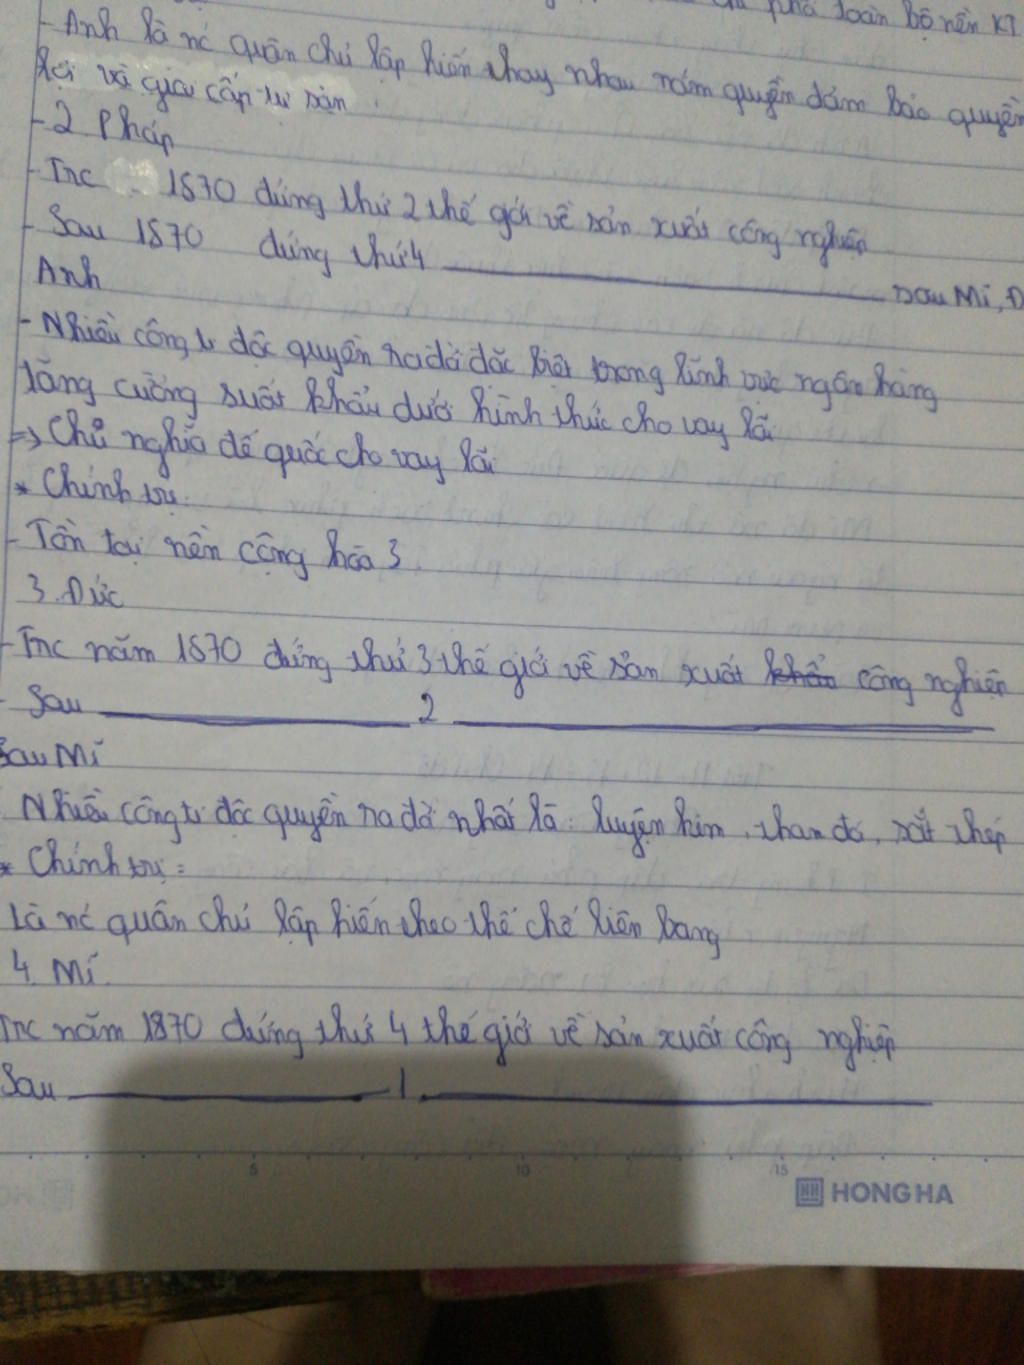 phá toàn bộ nền KT
- Anh là nc quân chủ lập hiến thay nhau nắm quyền đảm bảo quyền
lợi và giai cấp tư sản.
- 2 Pháp
- Trc 1870 đứng thứ 2 thế giới về sản xuất công nghiệp
- Sau 1870 đứng thứ 4 sau Mĩ, Đ
Anh
- Nhiều công ti độc quyền ra đời đặc biệt trong lĩnh vực ngân hàng
tăng cường suất khẩu dưới hình thức cho vay lãi
=> Chủ nghĩa đế quốc cho vay lãi
* Chính trị:
- Tồn tại nền cộng hòa 3
3. Đức
- Trc năm 1870 đứng thứ 3 thế giới về sản xuất khẩu công nghiệp
- Sau 2
Sau Mĩ
Nhiều công ti độc quyền ra đời nhất là: luyện kim, than đá, sắt thép
* Chính trị:
Là nc quân chủ lập hiến theo thể chế liên bang
4. Mĩ.
Trc năm 1870 đứng thứ 4 thế giới về sản xuất công nghiệp
Sau 1
5 10 15
HONG HA